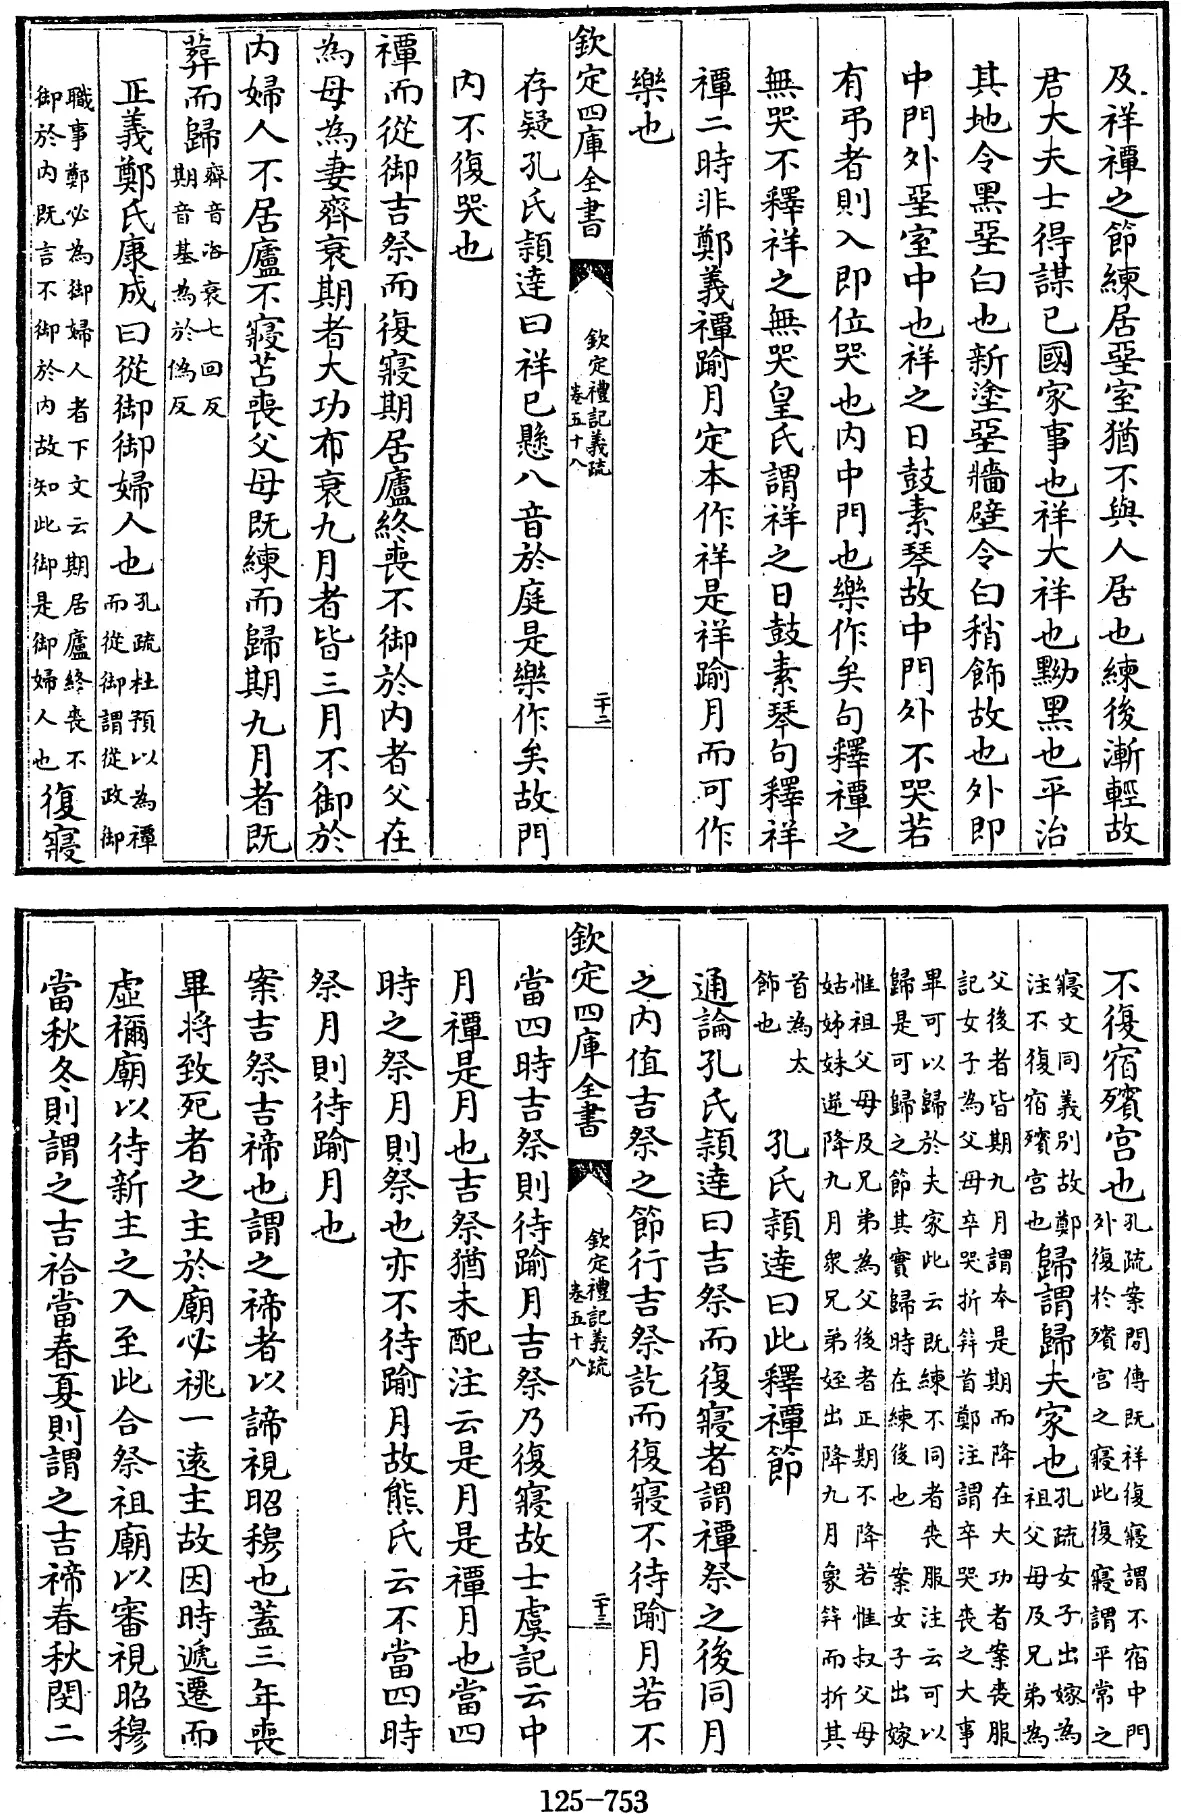 及祥禫之節練居堊室猶不與人居也練後漸輕故
君大夫士得謀已國家事也祥大祥也黝黑也平治
其地令黑堊白也新塗堊牆壁令白稍飾故也外即
中門外堊室中也祥之日鼓素琴故中門外不哭若
有弔者則入即位哭也内中門也樂作矣句釋禫之
無哭不釋祥之無哭皇氏謂祥之日鼓素琴句釋祥
禫二時非鄭義禫踰月定本作祥是祥踰月而可作
樂也
欽定四庫全書
欽定禮記義疏
卷五十八
二十二
存疑孔氏頴達曰祥已懸八音於庭是樂作矣故門
内不復哭也
禫而從御吉祭而復寢期居廬終喪不御於内者父在
為母為妻齊衰期者大功布衰九月者皆三月不御於
内婦人不居廬不寢苫喪父母既練而歸期九月者既
葬而歸齊音咨衰七回反
期音基為於偽反
正義鄭氏康成曰從御御婦人也孔疏杜預以為禫
而從御謂從政御
職事鄭必為御婦人者下文云期居廬終喪不
御於内既言不御於内故知此御是御婦人也復寢
不復宿殯宮也孔疏案間傳既祥復寢謂不宿中門
外復於殯宮之寢此復寢謂平常之
寢文同義别故鄭
注不復宿殯宮也歸謂歸夫家也孔疏女子出嫁為
祖父母及兄弟為
父後者皆期九月謂本是期而降在大功者案喪服
記女子為父母卒哭折筓首鄭注謂卒哭喪之大事
畢可以歸於夫家此云既練不同者喪服注云可以
歸是可歸之節其實歸時在練後也　案女子出嫁
惟祖父母及兄弟為父後者正期不降若惟叔父母
姑姊妹逆降九月衆兄弟姪出降九月象筓而折其
首為太
節也　孔氏頴達曰此釋禫節
通論孔氏頴達曰吉祭而復寢者謂禫祭之後同月
之内值吉祭之節行吉祭訖而復寢不待踰月若不
欽定四庫全書
欽定禮記義疏
卷五十八
二十三
當四時吉祭則待踰月吉祭乃復寢故士虞記云中
月禫是月也吉祭猶未配注云是月是禫月也當四
時之祭月則祭也亦不待踰月故熊氏云不當四時
祭月則待踰月也
案吉祭吉禘也謂之禘者以諦視昭穆也蓋三年喪
畢将致死者之主於廟必祧一遠主故因時遞遷而
虛禰廟以待新主之入至此合祭祖廟以審視昭穆
當秋冬則謂之吉祫當春夏則謂之吉禘春秋閔二
125-753